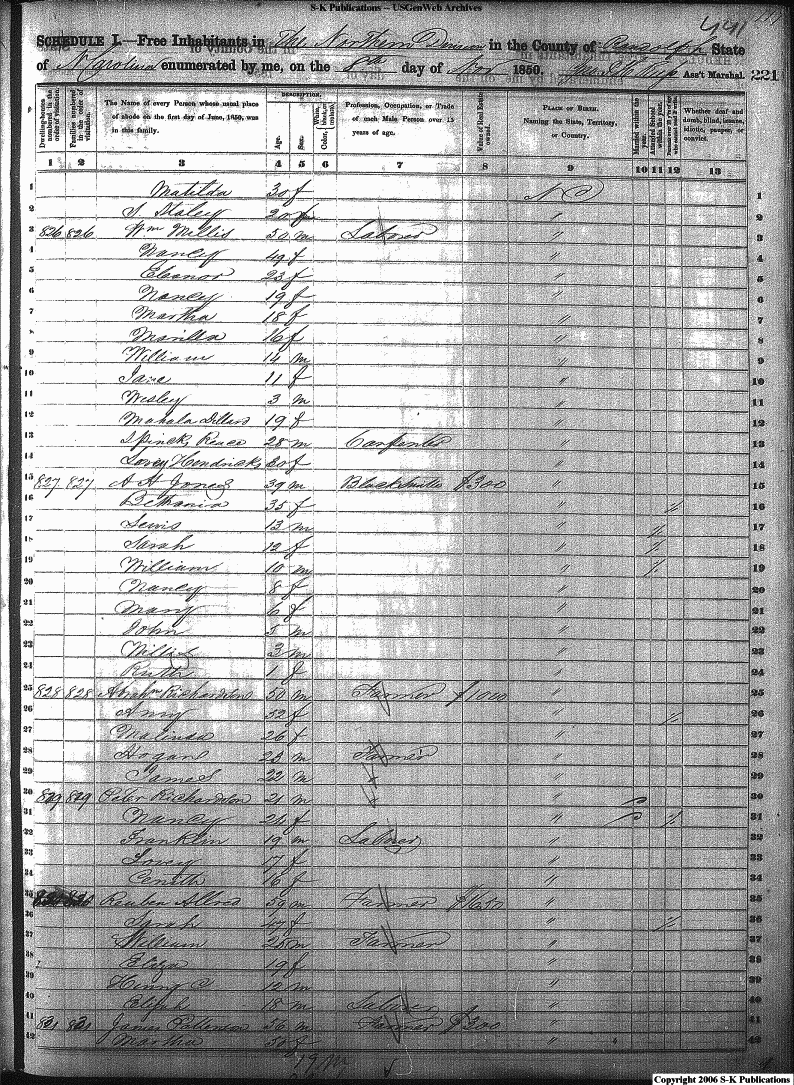 S-K Publications -- USGenWeb Archives
441
SCHEDULE I.—Free Inhabitants in The Northern Division in the County of Randolph State
of N Carolina enumerated by me, on the 8th day of Nov 1850. Ass't Marshal. 221
Dwelling-houses numbered in the order of visitation.
Families numbered in the order of visitation.
The Name of every Person whose usual place of abode on the first day of June, 1850, was in this family.
DESCRIPTION.
Age.
Sex.
Color, White, black, or mulatto.
Profession, Occupation, or Trade of each Male Person over 15 years of age.
Value of Real Estate owned.
PLACE OF BIRTH. Naming the State, Territory, or Country.
Married within the year.
Attended School within the year.
Whether deaf and dumb, blind, insane, idiotic, pauper, or convict.
1 2 3 4 5 6 7 8 9 10 11 12 13
1 Matilda 30 f N C 1
2 S. Staley 20 f " 2
3 826 826 Wm Millis 50 m Laborer " 3
4 Nancy 49 f " 4
5 Eleanor 23 f " 5
6 Nancy 19 f " 6
7 Martha 18 f " 7
8 16 f " 8
9 William 14 m " 9
10 Jane 11 f " 10
11 Wesley 3 m " 11
12 Mahala Dillard 19 f " 12
13 Spinks Reace 28 m Carpenter " 13
14 Lovey Hendricks 20 f " 14
15 827 827 A H Jones 39 m Blacksmith $300 " 15
16 Bethania 35 f " " 16
17 Lewis 13 m " 17
18 Sarah 12 f " 18
19 William 10 m " 19
20 Nancy 8 f " 20
21 Mary 6 f " 21
22 John 5 m " 22
23 Willis 3 m " 23
24 Ruth 1 f " 24
25 828 828 Abrahm Richardson 50 m Farmer $1000 " 25
26 Amy 52 f " " 26
27 Malinda 26 f " 27
28 Hogan 23 m Farmer " 28
29 James 22 m " 29
30 829 829 Peter Richardson 21 m " 30
31 Nancy 24 f " 31
32 Franklin 19 m Laborer " 32
33 Lovey 17 f " 33
34 16 f " 34
35 Reuben Allred 59 m Farmer $650 " 35
36 Sarah 47 f " " 36
37 William 25 m Farmer " 37
38 Eliza 19 f " 38
39 Henry C 12 m " 39
40 Elijah 18 m Laborer " 40
41 831 831 James Patterson 56 m Farmer $200 " 41
42 Martha 50 f " 42
Copyright 2006 S-K Publications